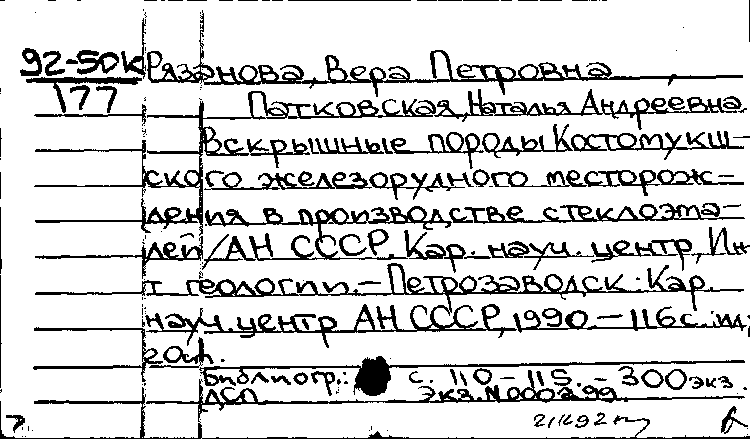 92-50К Рязанова, Вера Петровна,
177 Патковская, Наталья Андреевна.
Вскрышные породы Костомукш-
ского железорудного месторож-
дения в производстве стеклоэма-
лей/АН СССР. Кар. науч. центр, Ин-
т геологии.-Петрозаводск: Кар.
науч. центр АН СССР, 1990.-116с.: ил;
20см.
Библиогр.: с. 110-115.-300экз.
ДСП. Экз.N000299.